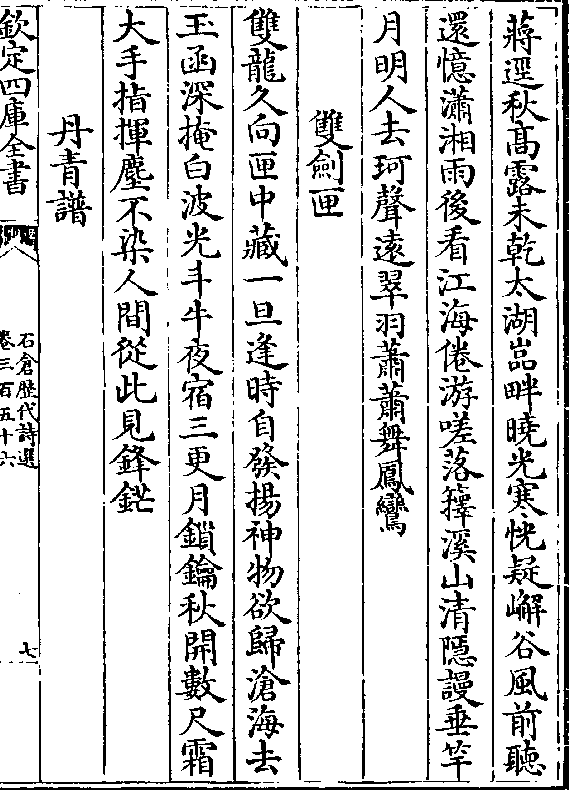 蔣逕秋髙露未乾太湖嵓畔曉光寒恍疑嶰谷風前聽
還憶瀟湘雨後看江海倦游嗟落籜溪山清隱謾垂竿
月明人去珂聲逺翠羽蕭蕭舞鳳鸞
雙劍匣
雙龍久向匣中藏一旦逢時自發揚神物欲歸滄海去
玉函深掩白波光斗牛夜宿三更月鎖鑰秋開數尺霜
大手指揮塵不染人間從此見鋒鋩
丹青譜
欽定四庫全書
石倉歴代詩選
卷三百五十六
七